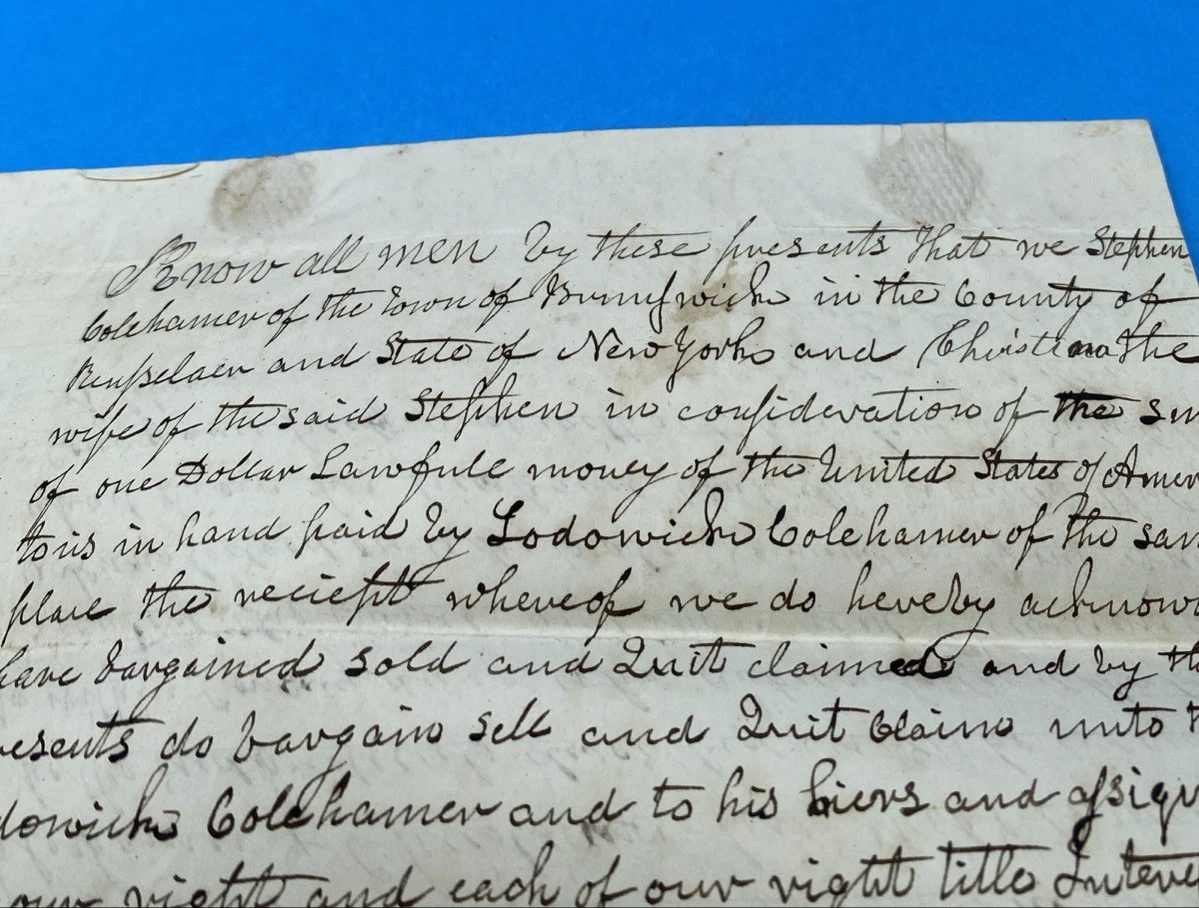 Know all men by these presents that we Stephen
Colehamer of the town of Brunswick in the County of
Rensselaer and State of New York and Christina the
wife of the said Stephen in consideration of the su
of one Dollar Lawfule money of the United States of Amer
to us in hand paid by Lodowick Colehamer of the sam
place the reciept whereof we do hereby acknow
have bargained sold and Quit claimed and by th
resents do bargain sell and Quit Claim unto
dowick Colehamer and to his hiers and assign
our right and each of our right title Intere